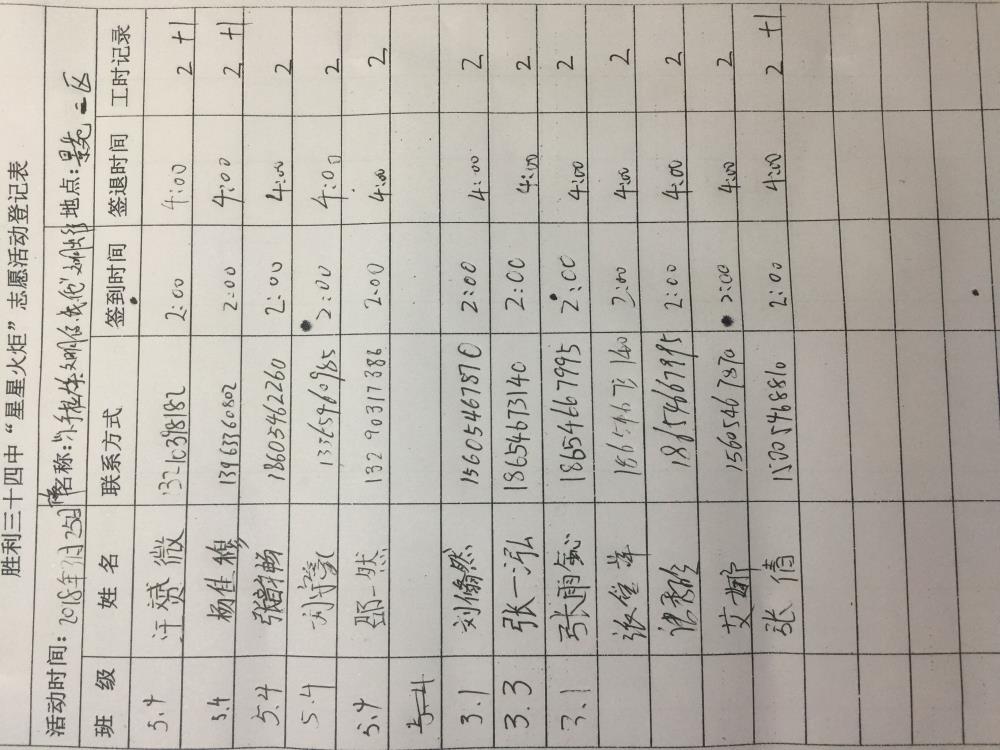 胜利三十四中“星星火炬”志愿活动登记表
活动时间：2018年3月25日 名称： 地点：景苑二区
班 级 姓 名 联系方式 签到时间 签退时间 工时记录
5.4 汗赟微 13210398182 2:00 4:00 2 +1
5.4 杨佳穆 13963360802 2:00 4:00 2 +1
5.4 18605462260 2:00 4:00 2
5.4 刘 13365460985 2:00 4:00 2
5.4 邵一然 13290317386 2:00 4:00 2
5.4
3.1 刘脩然 15605467870 2:00 4:00 2
3.3 张一泓 18654673140 2:00 4:00 2
3.1 张雨 18654667995 2:00 4:00 2
2:00 4:00 2
2:00 4:00 2
艾娜 15605467870 2:00 4:00 2
张倩 15005468810 2:00 4:00 2 +1